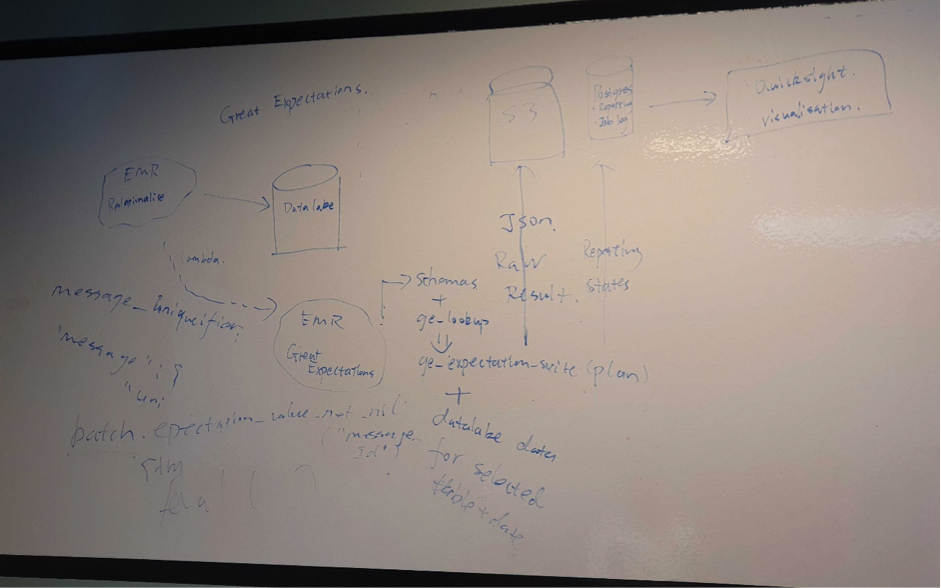 Great Expectations.
S3
Postgres
- Reporting
- Job log
Quicksight.
visualisation.
EMR
Relationalise
Datalake
Json
Raw
Result.
Reporting
states
lambda.
message_
schemas
+
ge-lookup
EMR
Great
Expectations
"message" : {
"uni
ge-expectation-suite (plan)
+
batch.epectation_value_not_nil
("message_
Id")
datalake data
for selected
table + date